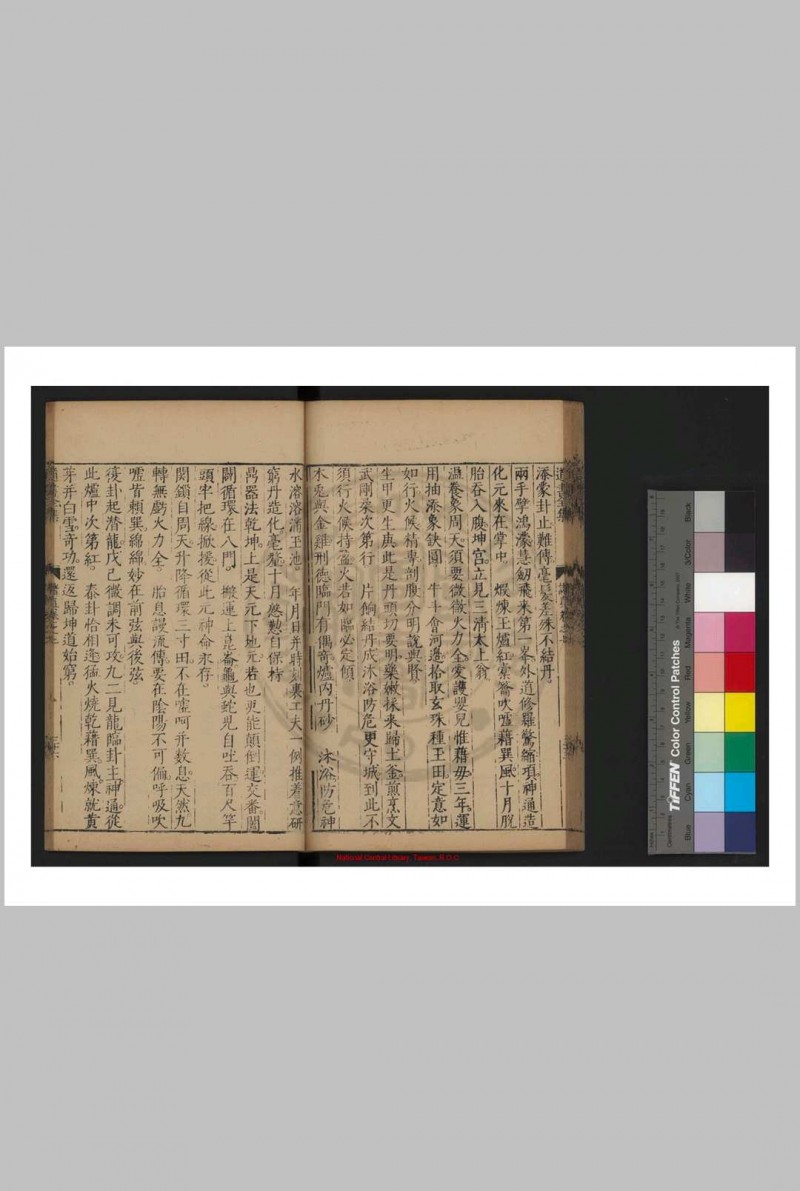 添象卦止難傳毫髮差殊不結丹。
兩手擘鴻濛慧劒飛來第一峯外道修羅驚縮項神通造
化元來在掌中 煆煉玉爐紅橐籥吹噓藉巽風十月脫
胎吞入腹坤宮立見三清太上翁
溫養象周天須要微微火力全愛護嬰兒惟藉母三年。運
用抽添象缺圓 牛斗會河邊拾取玄珠種玉田定意如
如行火候精專剖腹分明說與賢。
生甲更生庚此是丹頭切要明藥嫩採來歸土釜煎烹文
武剛柔次第行 片餉結丹成沐浴防危更守城到此不
須行火候持盈火若如臨必定傾
木兎與金雞刑德臨門有偶竒爐內丹砂 沐浴防危神
水溶溶滿玉池。 年月日并時刻裏工夫一例推着意研
窮丹造化毫釐十月慇懃自保持
鼎器法乾坤上是天元下地元若也更能顛倒運交番闔
闢循環在八門。 搬運上崑崙龜與蛇兒自吐吞百尺竿
頭牢把線掀援從此元神命永存。
関鎖自周天升降循環三寸田不在噓呵并数息天然九
轉無虧火力全。 胎息謾流傳要在陰陽不可偏呼吸吹
噓皆頼巽綿綿妙在前弦與後弦。
復卦起潜龍戊己微調未可攻九二見龍臨卦主神通從
此爐中次第紅。 泰卦恰相逢猛火燒乾藉巽風。煉就黃
芽并白雪竒功。還返歸坤道始窮。
National Central Library, Taiwan, R.O.C
TIFFEN Color Control Patches
Blue
Cyan
Green
Yellow
Red
Magenta
White
3/Color
Black
Centimetres